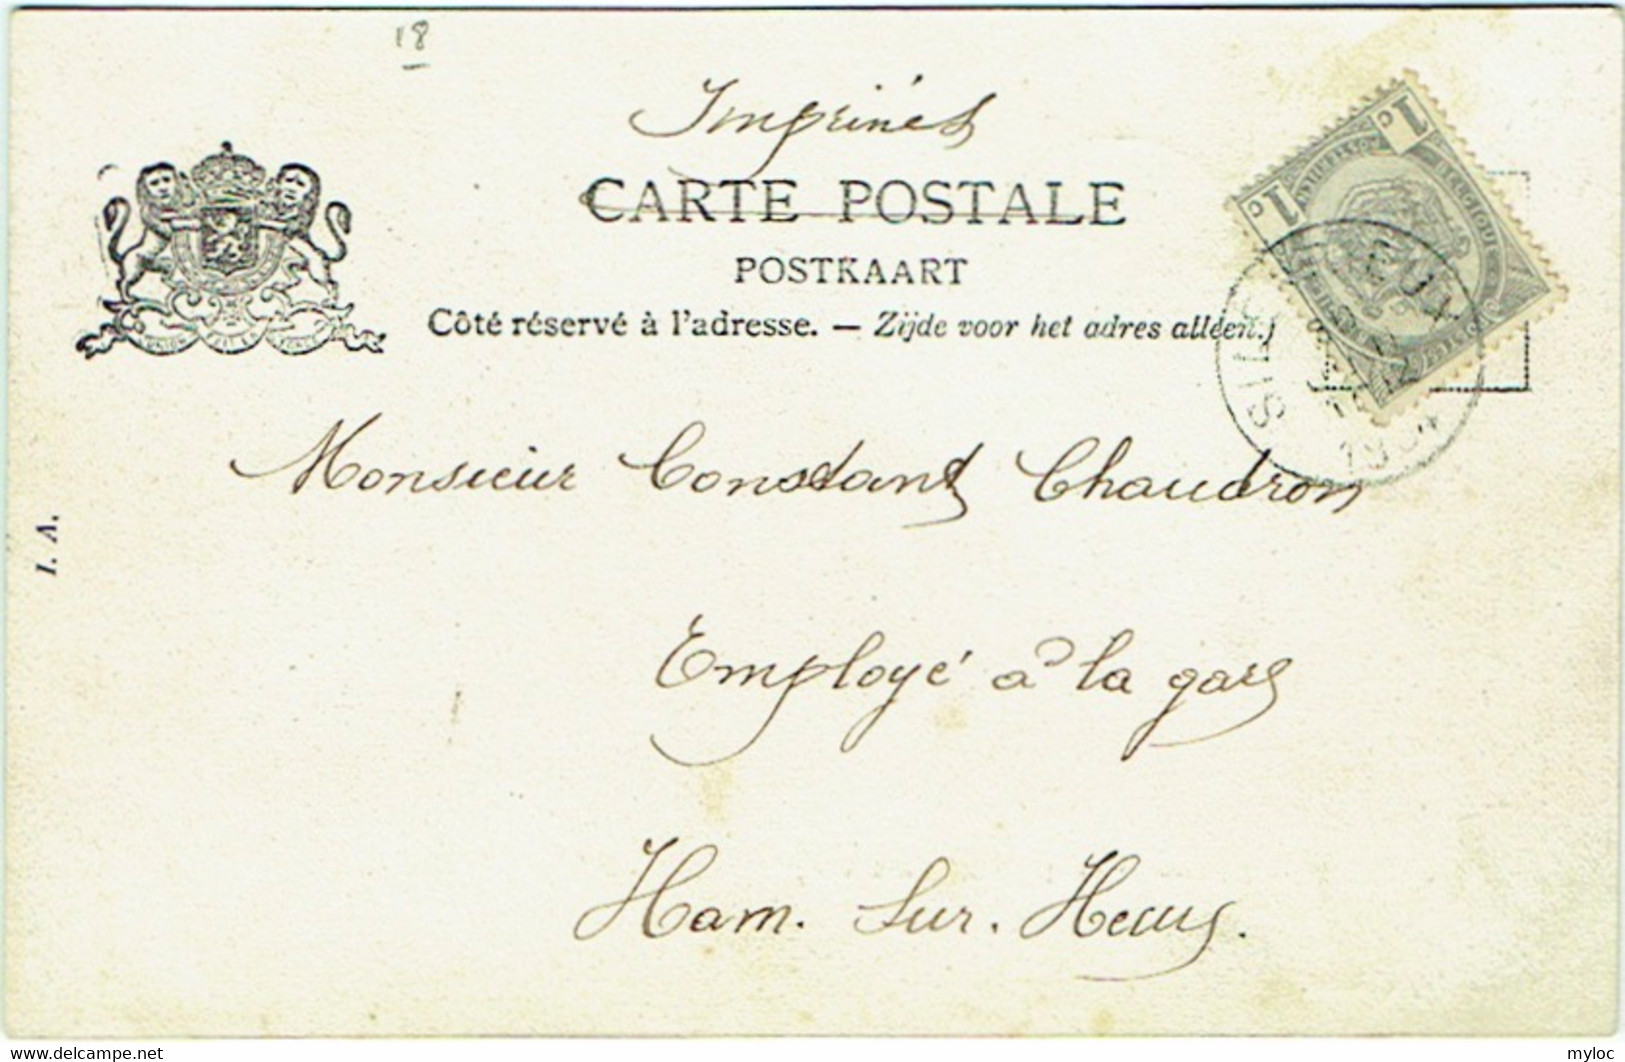 18
Imprimés
CARTE POSTALE
POSTKAART
Côté réservé à l'adresse. — Zijde voor het adres alleen.
1 c
1 c
BELGIQUE
1904
Monsieur Constant Chaudron
I. A.
Employé à la gare
Ham. Sur. Heure.
delcampe.net
myloc